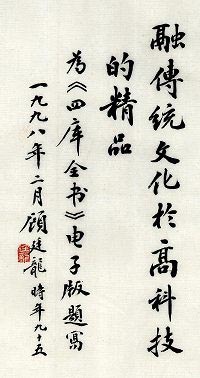 融傳統文化於高科技
的精品
為《四库全书》电子版题寫
一九九八年二月顾廷龍時年九十五